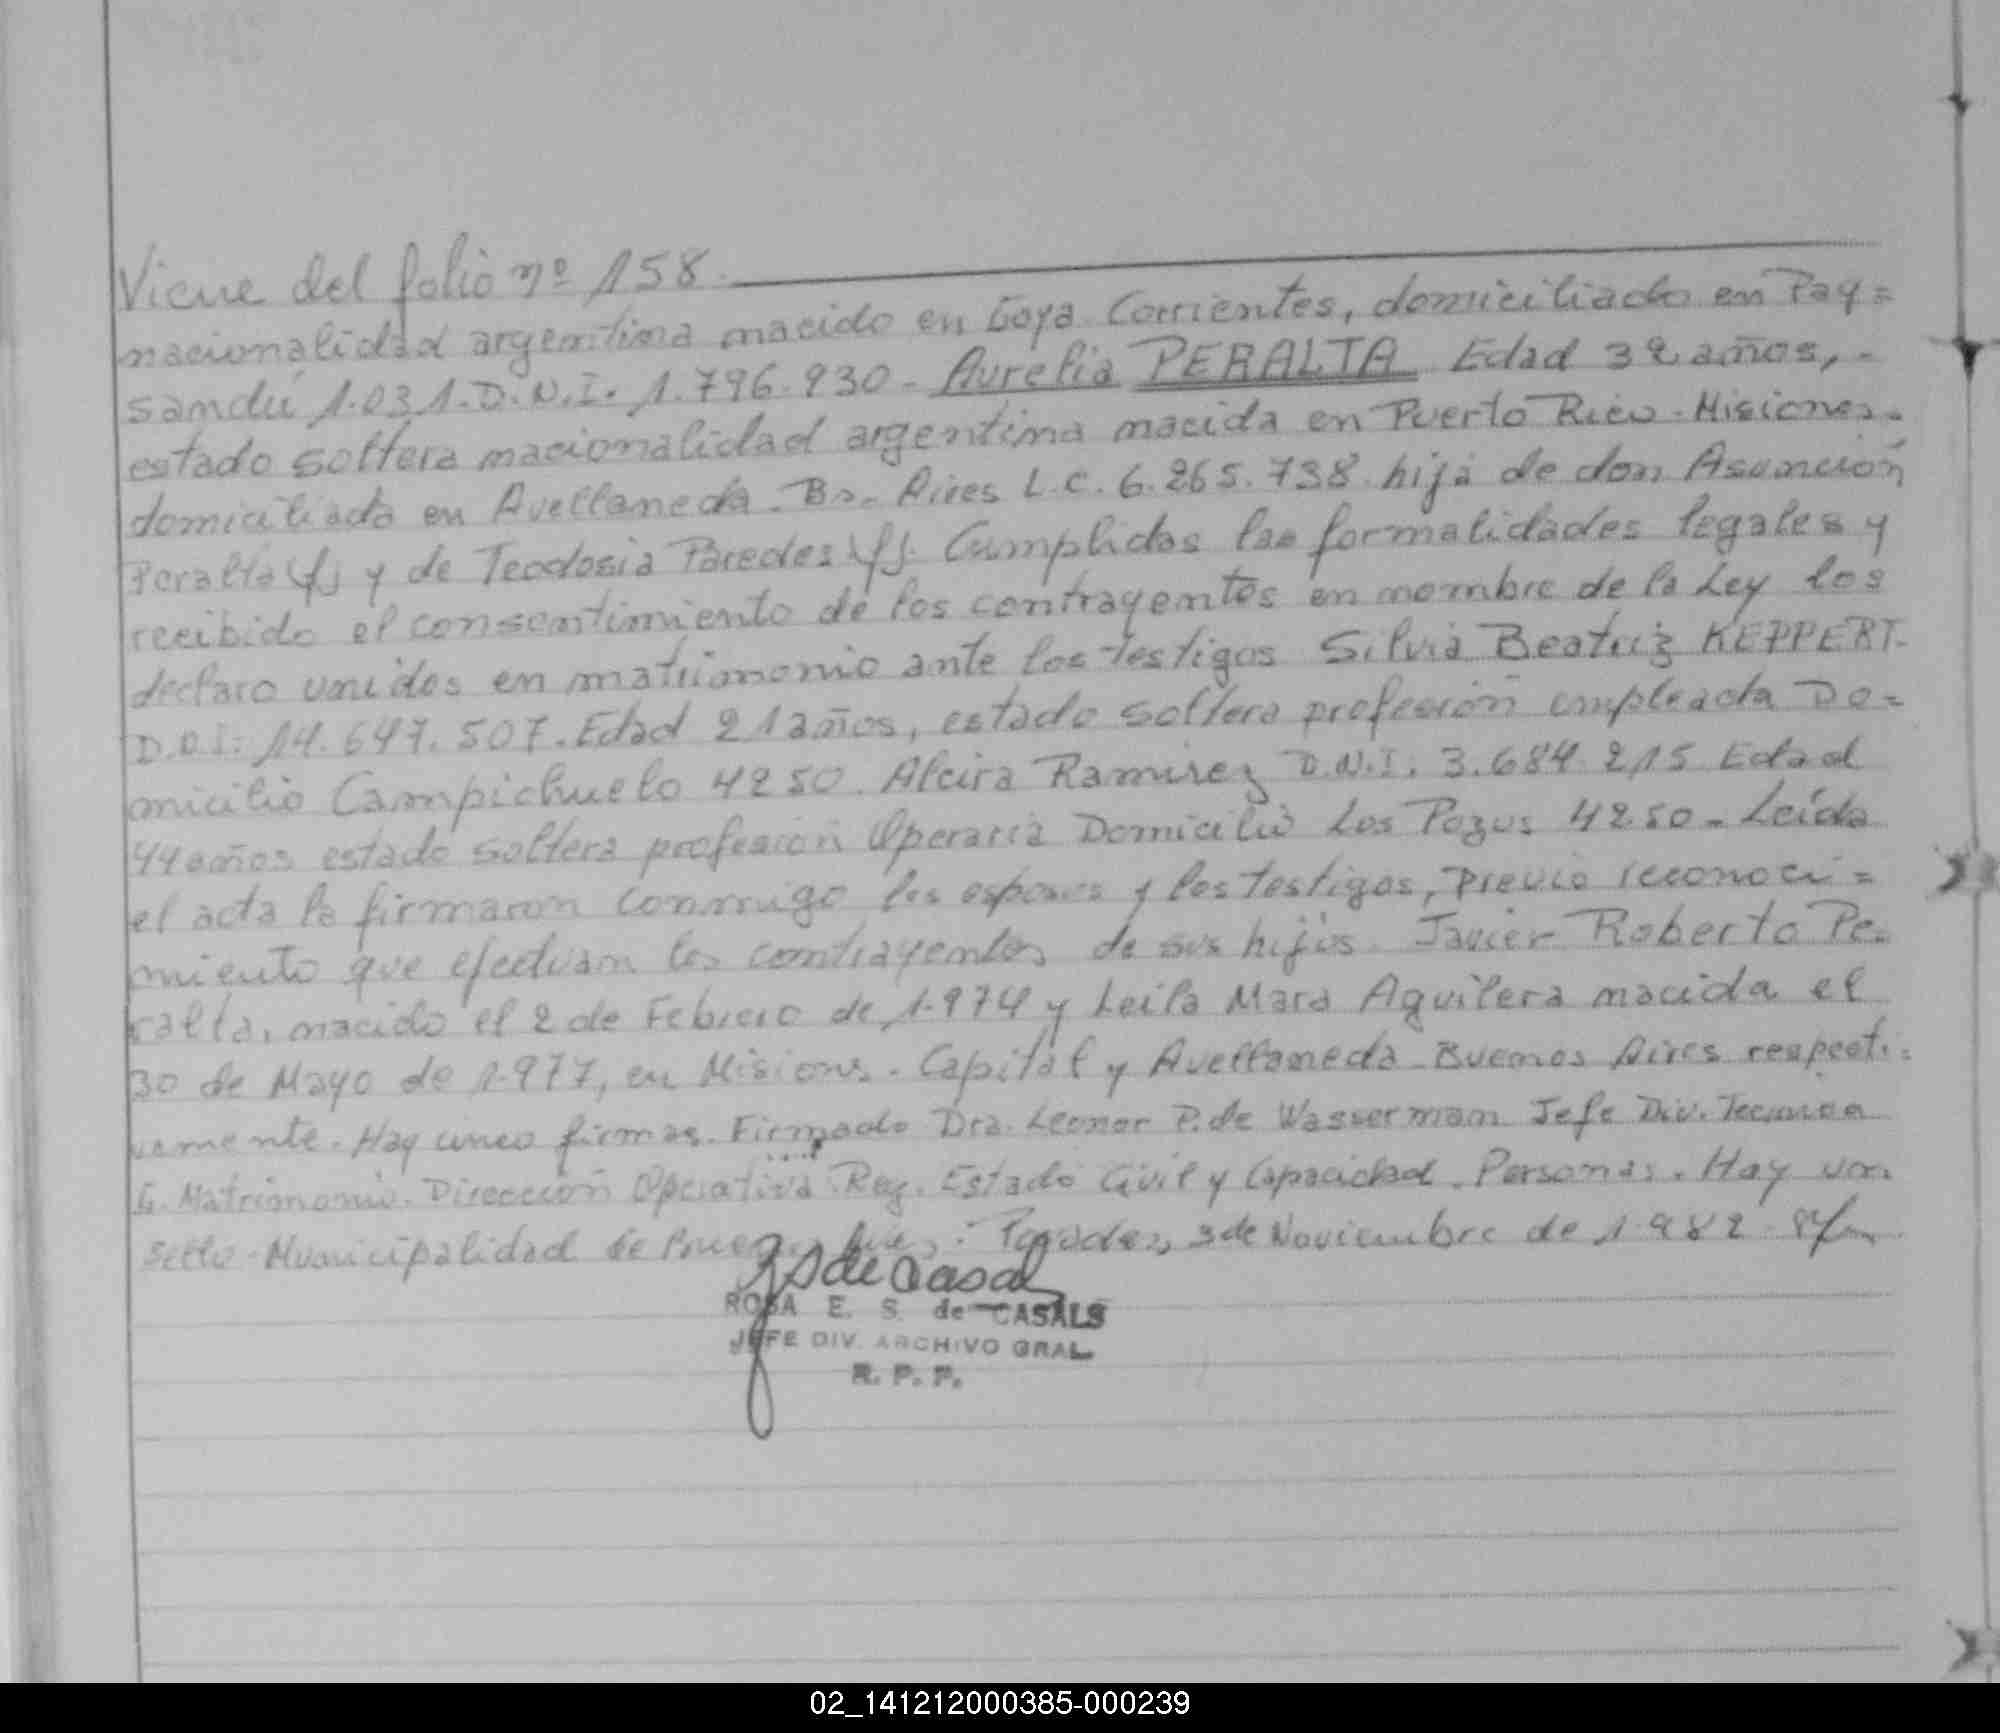 Viene del folio nº 158.
nacionalidad argentina nacido en Goya Corrientes, domiciliado en Pay=
sandú 1.031. D.N.I. 1.796.930 - Aurelia PERALTA Edad 32 años, -
estado soltera nacionalidad argentina nacida en Puerto Rico - Misiones.
domiciliada en Avellaneda. Bs. Aires L.C. 6.265.738 hija de don Asunción
Peralta (f) y de Teodosia Paredes (f). Cumplidas las formalidades legales y
recibido el consentimiento de los contrayentes en nombre de la Ley los
declaro unidos en matrimonio ante los testigos Silvia Beatriz KEPPERT-
D.N.I: 14.647.507. Edad 21 años, estado soltera profesión empleada Do=
micilio Campichuelo 4250. Alcira Ramirez D.N.I. 3.684.215 Edad
44 años estado soltera profesión Operaria Domicilio Los Pozos 4250 - Leída
el acta la firmaron conmigo los esposos y los testigos, previo reconoci=
miento que efectúan los contrayentes de sus hijos. Javier Roberto Pe=
ralta, nacido el 2 de Febrero de 1.974 y Leila Mara Aguilera nacida el
30 de Mayo de 1.977, en Misions. Capital y Avellaneda - Buenos Aires respecti=
vamente. Hay cinco firmas. Firmado Dra. Leonor P. de Wasserman Jefe Div. Tecnica
G. Matrimonio. Dirección Operativa Reg. Estado Civil y Capacidad. Personas. Hay un
sello - Municipalidad de Buenos Aires. Posadas, 3 de Noviembre de 1.982
de Casals
ROSA E. S. de CASALS
JEFE DIV. ARCHIVO GRAL
R. P. P.
02_141212000385-000239